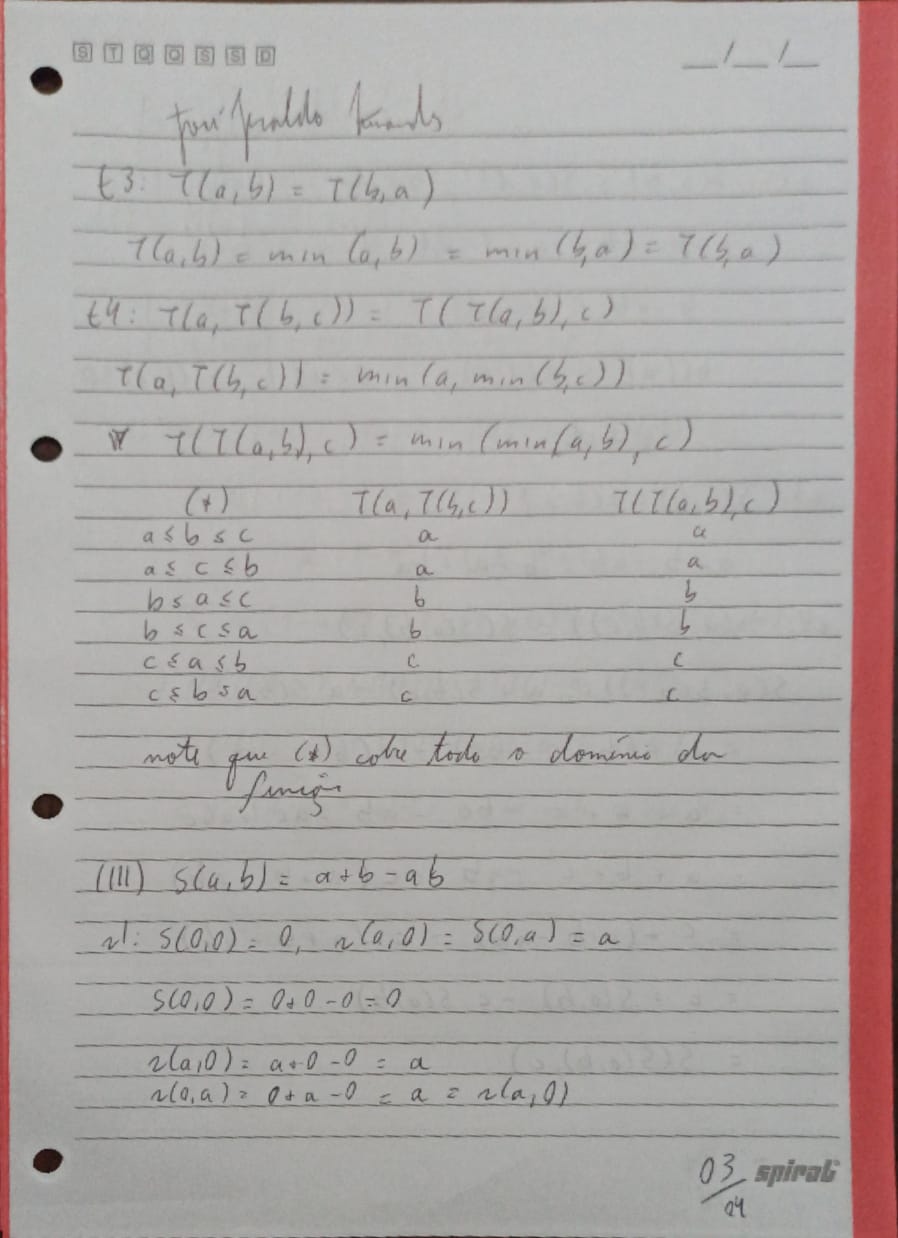 S T Q Q S S D
__/__/__
José Geraldo
t3: T(a,b) = T(b,a)
T(a,b) = min (a,b) = min (b,a) = T(b,a)
t4: T(a, T(b,c)) = T(T(a,b),c)
T(a, T(b,c)) = min(a, min(b,c))
T(T(a,b),c) = min(min(a,b),c)
(*) T(a,T(b,c)) T(T(a,b),c)
a ≤ b ≤ c a a
a ≤ c ≤ b a a
b ≤ a ≤ c b b
b ≤ c ≤ a b b
c ≤ a ≤ b c c
c ≤ b ≤ a c c
note que (*) cobre todo o domínio da
função
(III) S(a,b) = a+b-ab
s1: S(0,0) = 0, s(a,0) = S(0,a) = a
S(0,0) = 0+0-0=0
s(a,0) = a+0-0 = a
s(0,a) = 0+a-0 = a = s(a,0)
03/24
spiral